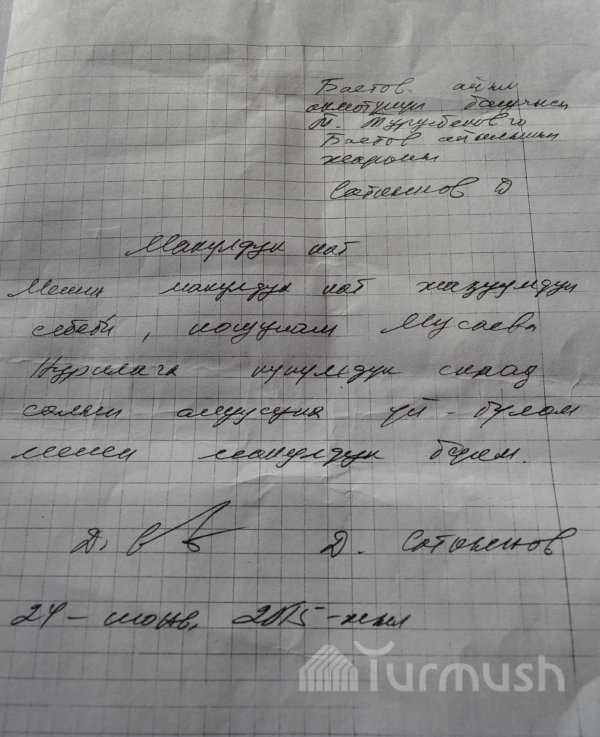 Баетов айыл
өкмөтүнүн башчысы
Т. Турулбековго
Баетов айылынын
жараяны
Сатыкенов Д
Макулдук кат
Менин макулдук кат жазуумдун
себеби, кошунам Мусаева
Нуриляга курулдук склад
салып алуусуна үй-бүлөм
менен макулдук берем.
Д. Сатыкенов
24-июнь, 2015-жыл
Turmush